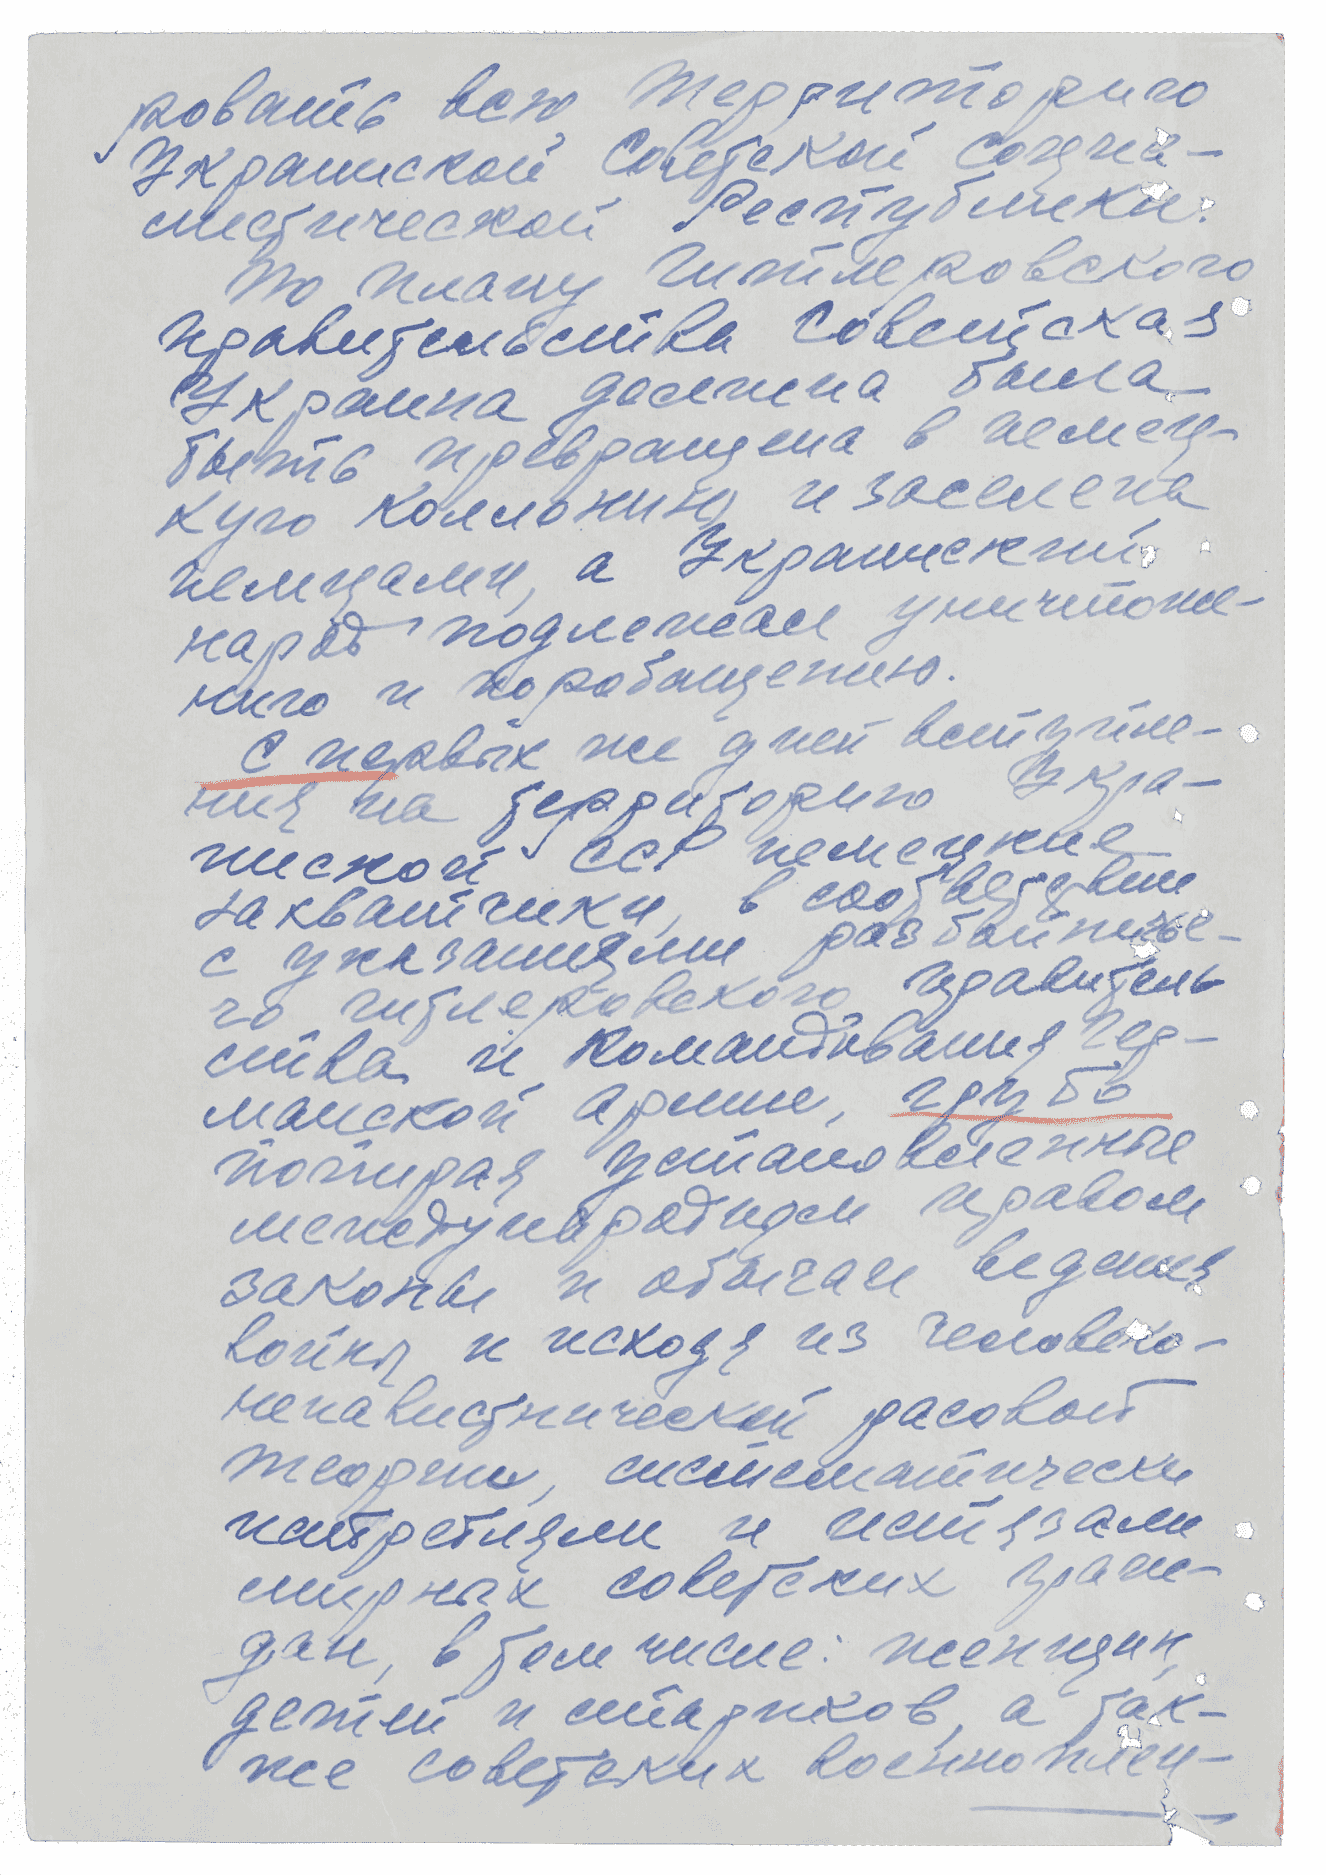 ровать всю территорию
Украинской Советской Социа-
листической Республики.
По плану гитлеровского
правительства Советская
Украина должна была
быть превращена в немец-
кую коллонию и заселена
немцами, а Украинский
народ подлежал уничтоже-
нию и порабощению.
С первых же дней вступле-
ния на территорию Укра-
инской ССР немецкие
захватчики, в соответствии
с указаниями разбойничье-
го гитлеровского правитель
ства и командования Гер-
манской армии, грубо
попирая установленные
международном правом
законы и обычаи ведения
войны и исходя из человеко-
ненавистнической расовой
теории, систематически
истребляли и истязали
мирных советских граж-
дан, в том числе: женщин,
детей и стариков, а так-
же советских военноплен-